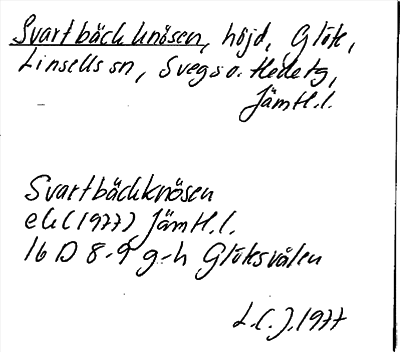 Svartbäckknösen, höjd, Glöte,
Linsells sn, Svegs o. Hede tg,
Jämtl.l.
Svartbäckknösen
ek (1977) Jämtl.l.
16 D 8-9 g-h Glötesvålen
L.C.J. 1977